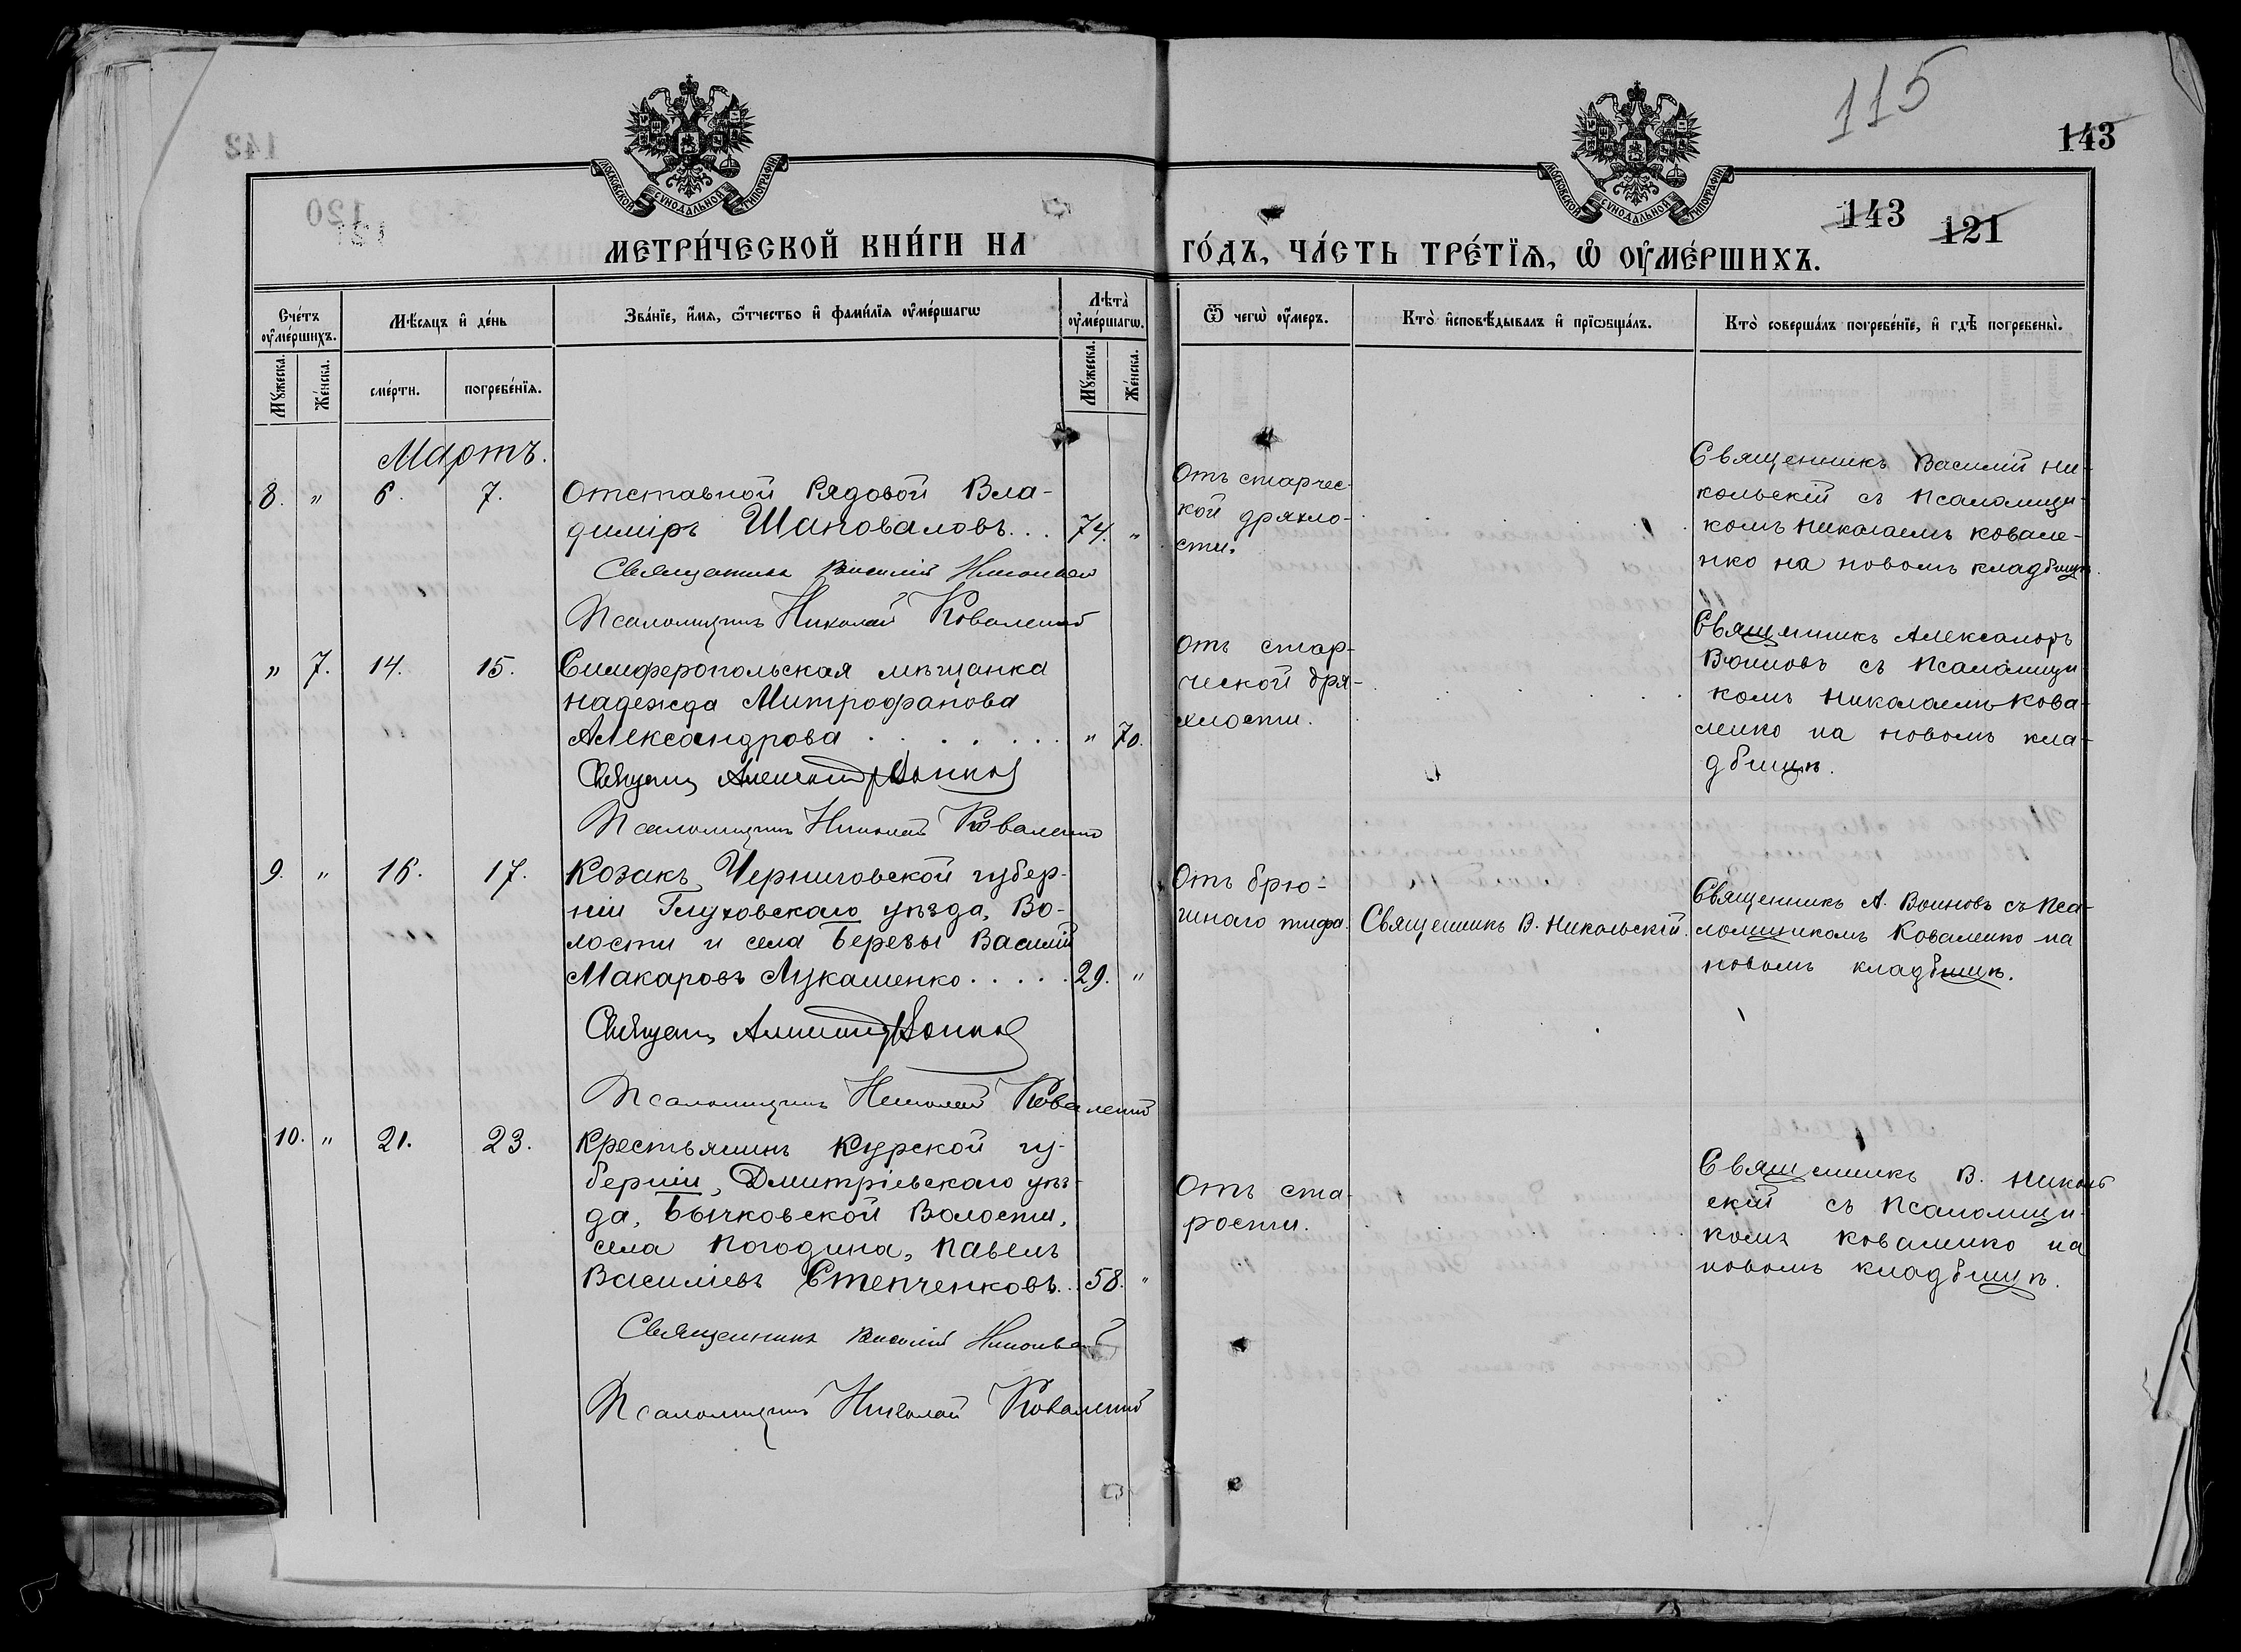 115
143
143 121
МОСКОВСКОЙ СУНОДАЛЬНОЙ ТИПОГРАФІИ
МОСКОВСКОЙ СУНОДАЛЬНОЙ ТИПОГРАФІИ
МЕТРИ́ЧЕСКОЙ КНИ́ГИ НА ГО́ДЪ, ЧА́СТЬ ТРЕ́ТЇѦ, Ѡ҆ ОУ҆МЕ́РШИХЪ.
Сче́тъ оу҆ме́ршихъ.
Мѣ́сяцъ и҆ де́нь
Зва́нїе, и҆́мя, ѻ҆́тчество и҆ фами́лїя оу҆ме́ршагѡ
Лѣта̀ оу҆ме́ршагѡ.
Ѿ чегѡ̀ оу҆́меръ.
Кто̀ и҆сповѣ́дывалъ и҆ прїѡбща́лъ.
Кто̀ соверша́лъ погребе́нїе, и҆ гдѣ̀ погребены̀.
Мꙋ́жеска.
Же́нска.
сме́рти.
погребе́нїя.
Мꙋ́жеска.
Же́нска.
Мартъ.
8. " 6. 7. Отставной Рядовой Вла-
димiръ Шаповаловъ... 74. "
Священникъ Василiй Никольскiй
Псаломщикъ Николай Коваленко
Отъ старчес-
кой дряхло-
сти.
Священникъ Василiй Ни-
кольскiй съ псаломщи-
комъ Николаемъ Ковале-
нко на новомъ кладбищѣ.
" 7. 14. 15. Симферопольская мѣщанка
Надежда Митрофанова
Александрова ........ " 70.
Священ. Александръ Воиновъ
Псаломщикъ Николай Коваленко
Отъ стар-
ческой дря-
хлости.
Священникъ Александръ
Воиновъ съ псаломщи-
комъ Николаемъ Кова-
ленко на новомъ кла-
дбищѣ.
9. " 16. 17. Козакъ Черниговской губер-
нiи Глуховскаго уѣзда, Во-
лости и села Березы Василiй
Макаровъ Лукашенко..... 29. "
Священ. Александръ Воиновъ
Псаломщикъ Николай Коваленко
Отъ брю-
шнаго тифа.
Священникъ В. Никольскiй.
Священникъ А. Воиновъ съ пса-
ломщикомъ Коваленко на
новомъ кладбищѣ.
10. " 21. 23. Крестьянинъ Курской гу-
бернiи, Дмитрiевскаго уѣз-
да, Бычковской Волости,
села Погодина, Павелъ
Василiевъ Степченковъ... 58. "
Священникъ Василiй Никольскiй
Псаломщикъ Николай Коваленко
Отъ ста-
рости.
Священникъ В. Николь
скiй съ псаломщи-
комъ Коваленко на
новомъ кладбищѣ.